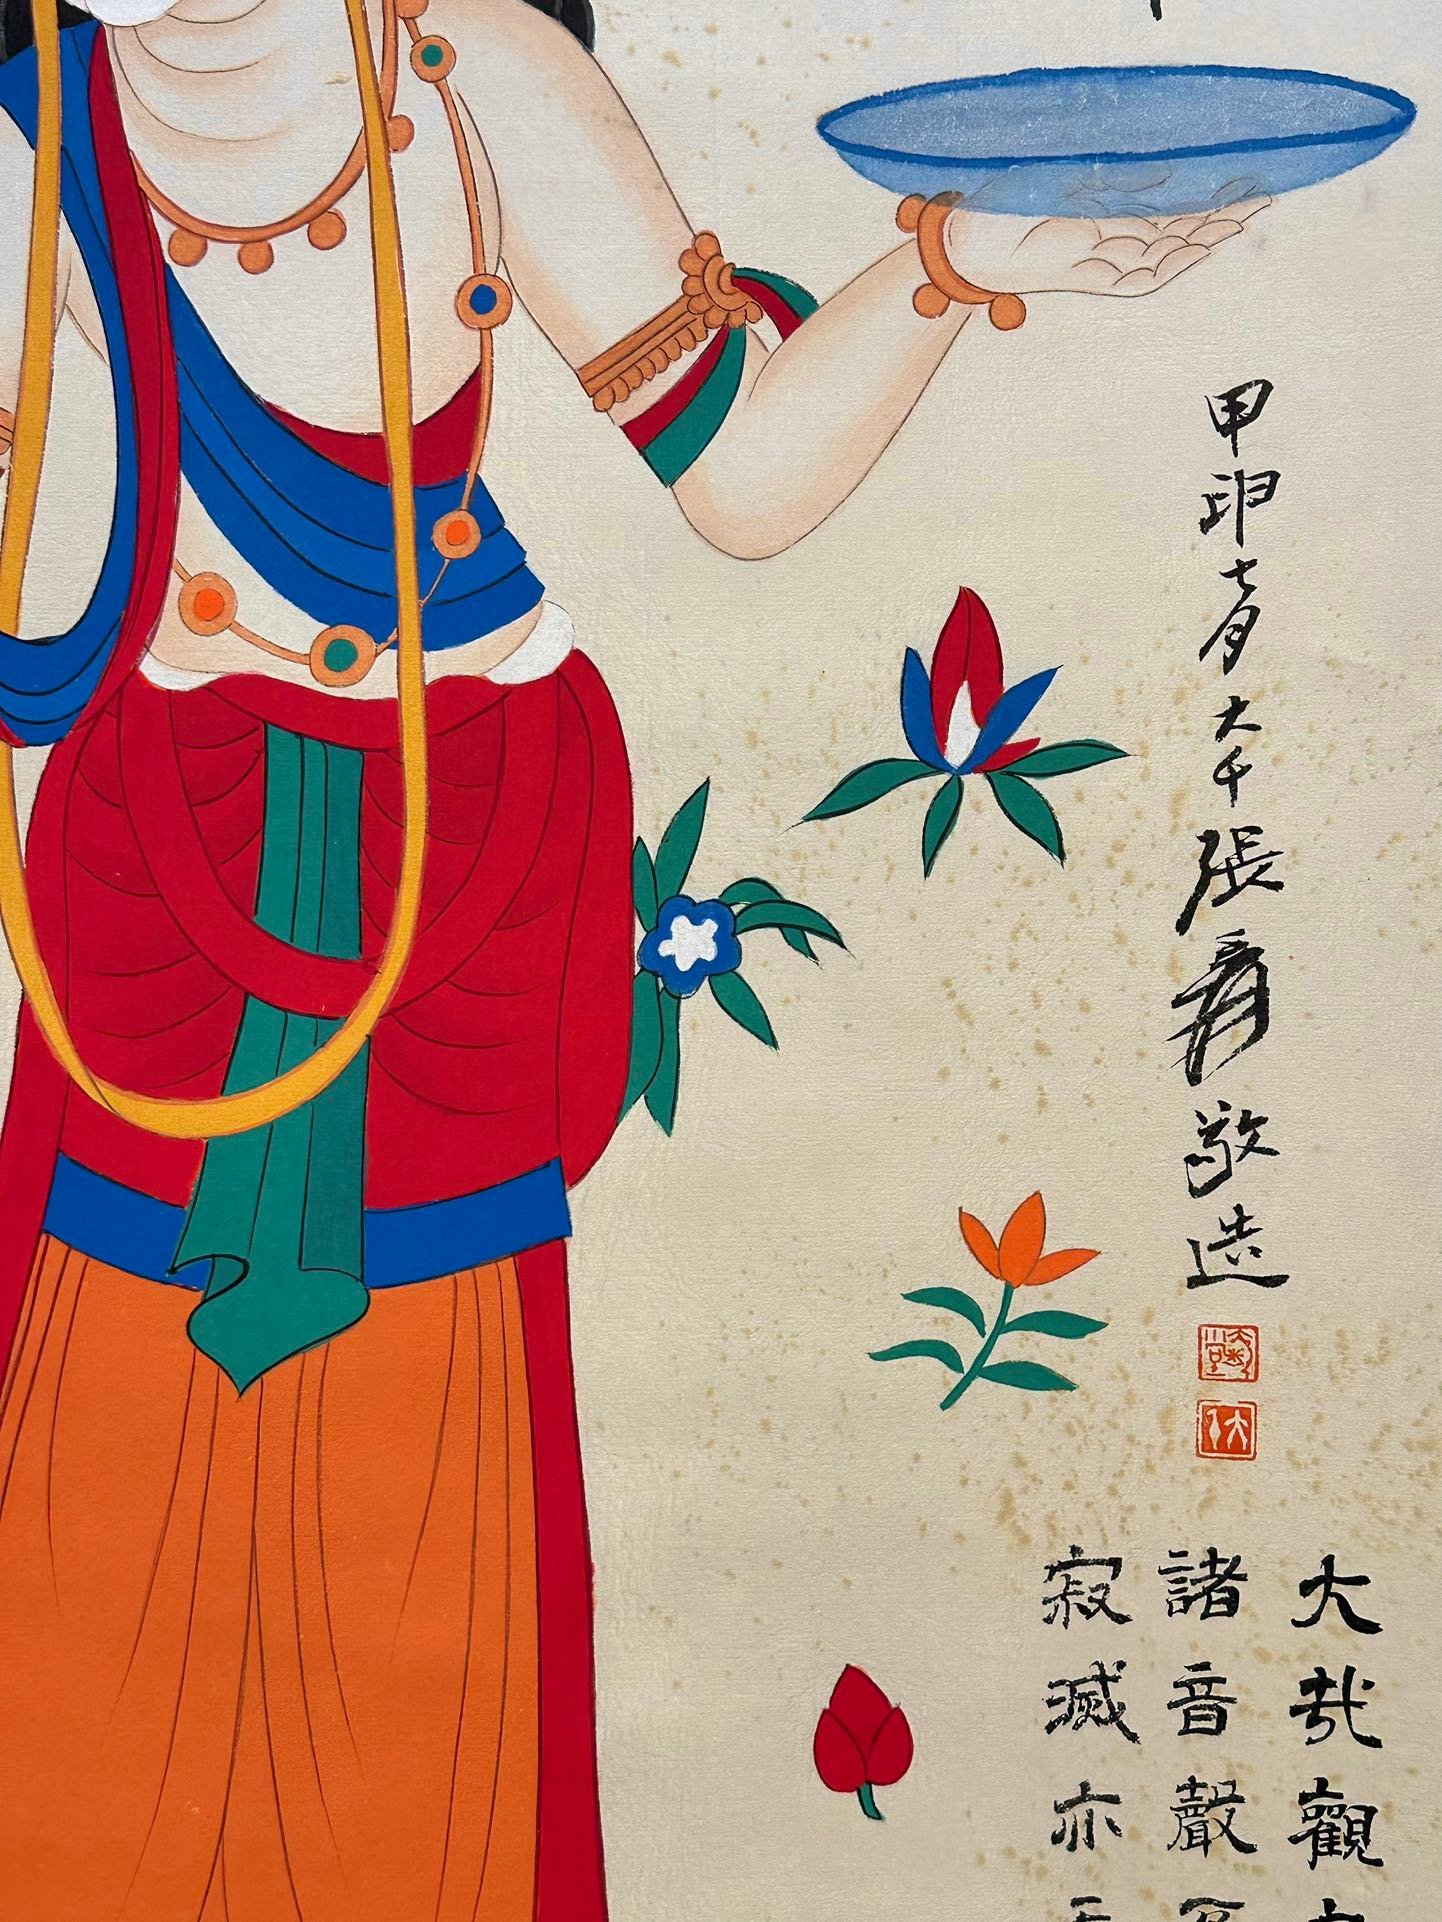 甲申七月大千張爰敬造
大千
大哉觀
諸音聲
寂滅亦